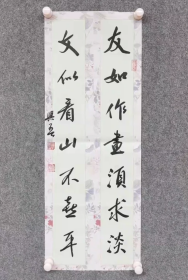 友如作畫須求淡
文似看山不喜平